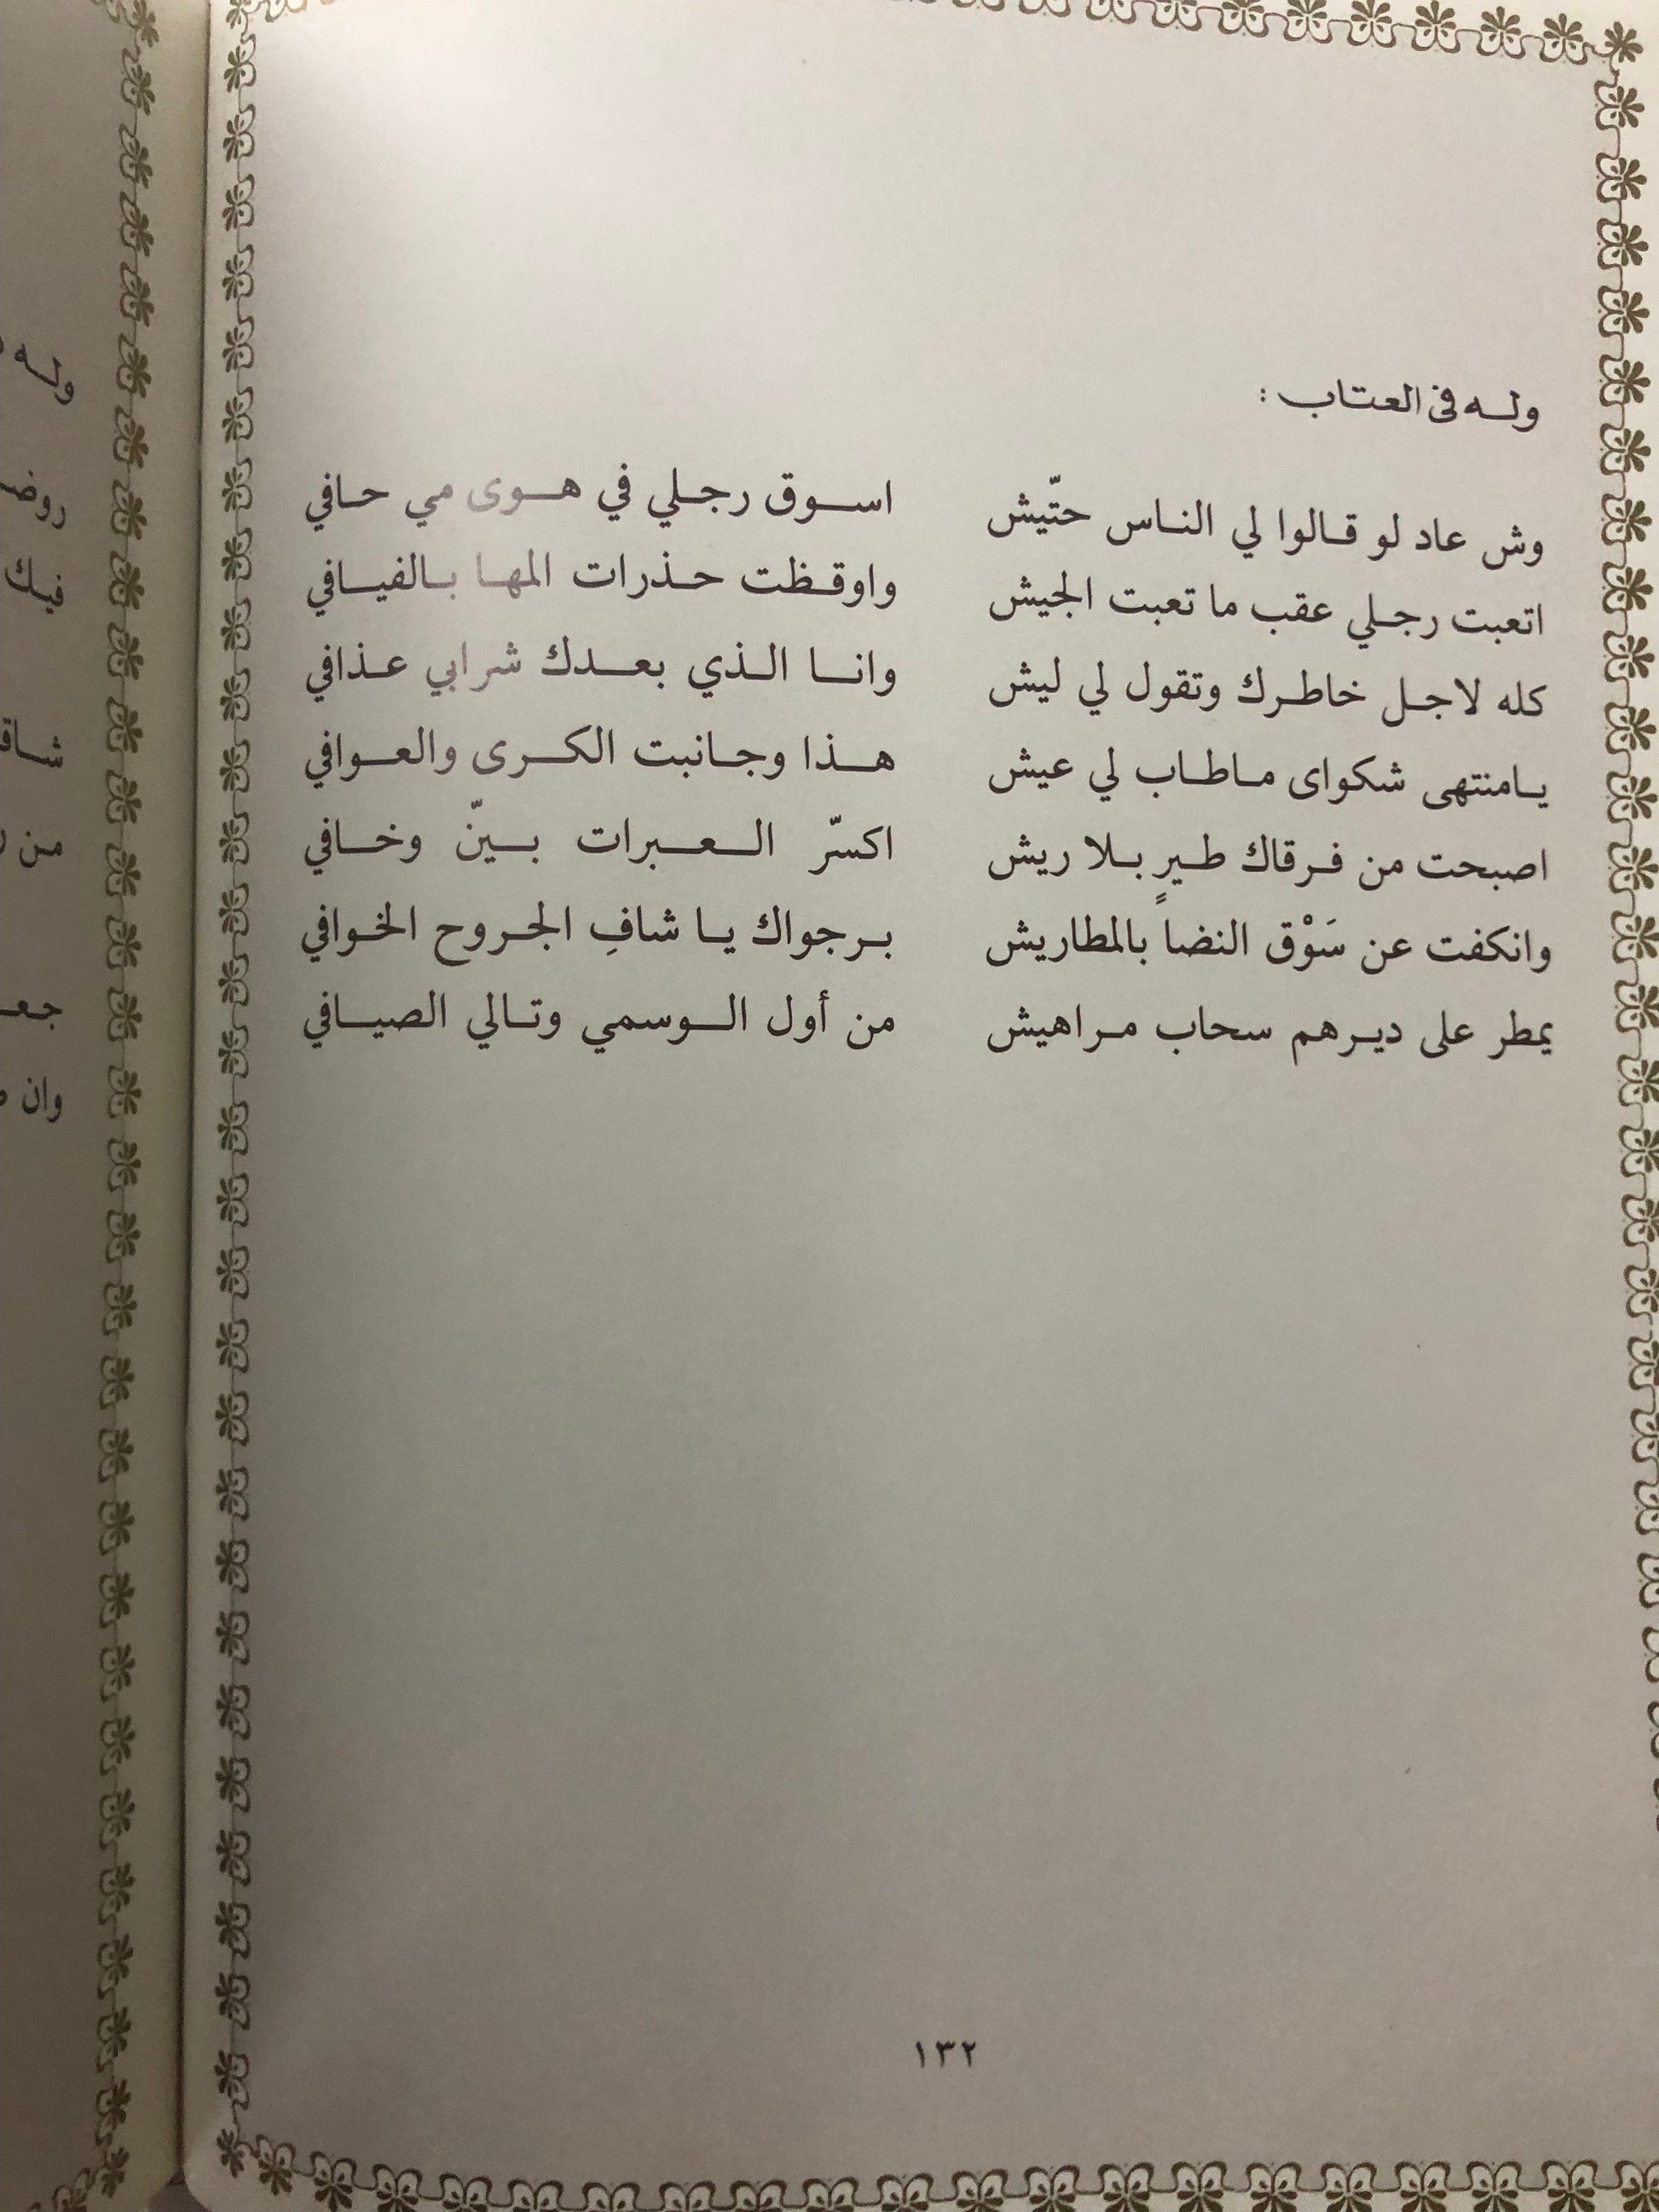 وله في العتاب :
وش عاد لو قالوا لي الناس حتّيش اسوق رجلي في هوى مي حافي
اتعبت رجلي عقب ما تعبت الجيش واوقظت حذرات المها بالفيافي
كله لاجل خاطرك وتقول لي ليش وانا الذي بعدك شرابي عذافي
يامنتهى شكواى ماطاب لي عيش هذا وجانبت الكرى والعوافي
اصبحت من فرقاك طيرٍ بلا ريش اكسّر العبرات بينّ وخافي
وانكفت عن سَوْق النضا بالمطاريش برجواك يا شافِ الجروح الخوافي
يمطر على ديرهم سحاب مراهيش من أول الوسمي وتالي الصيافي
١٣٢
وله
فيك
وان